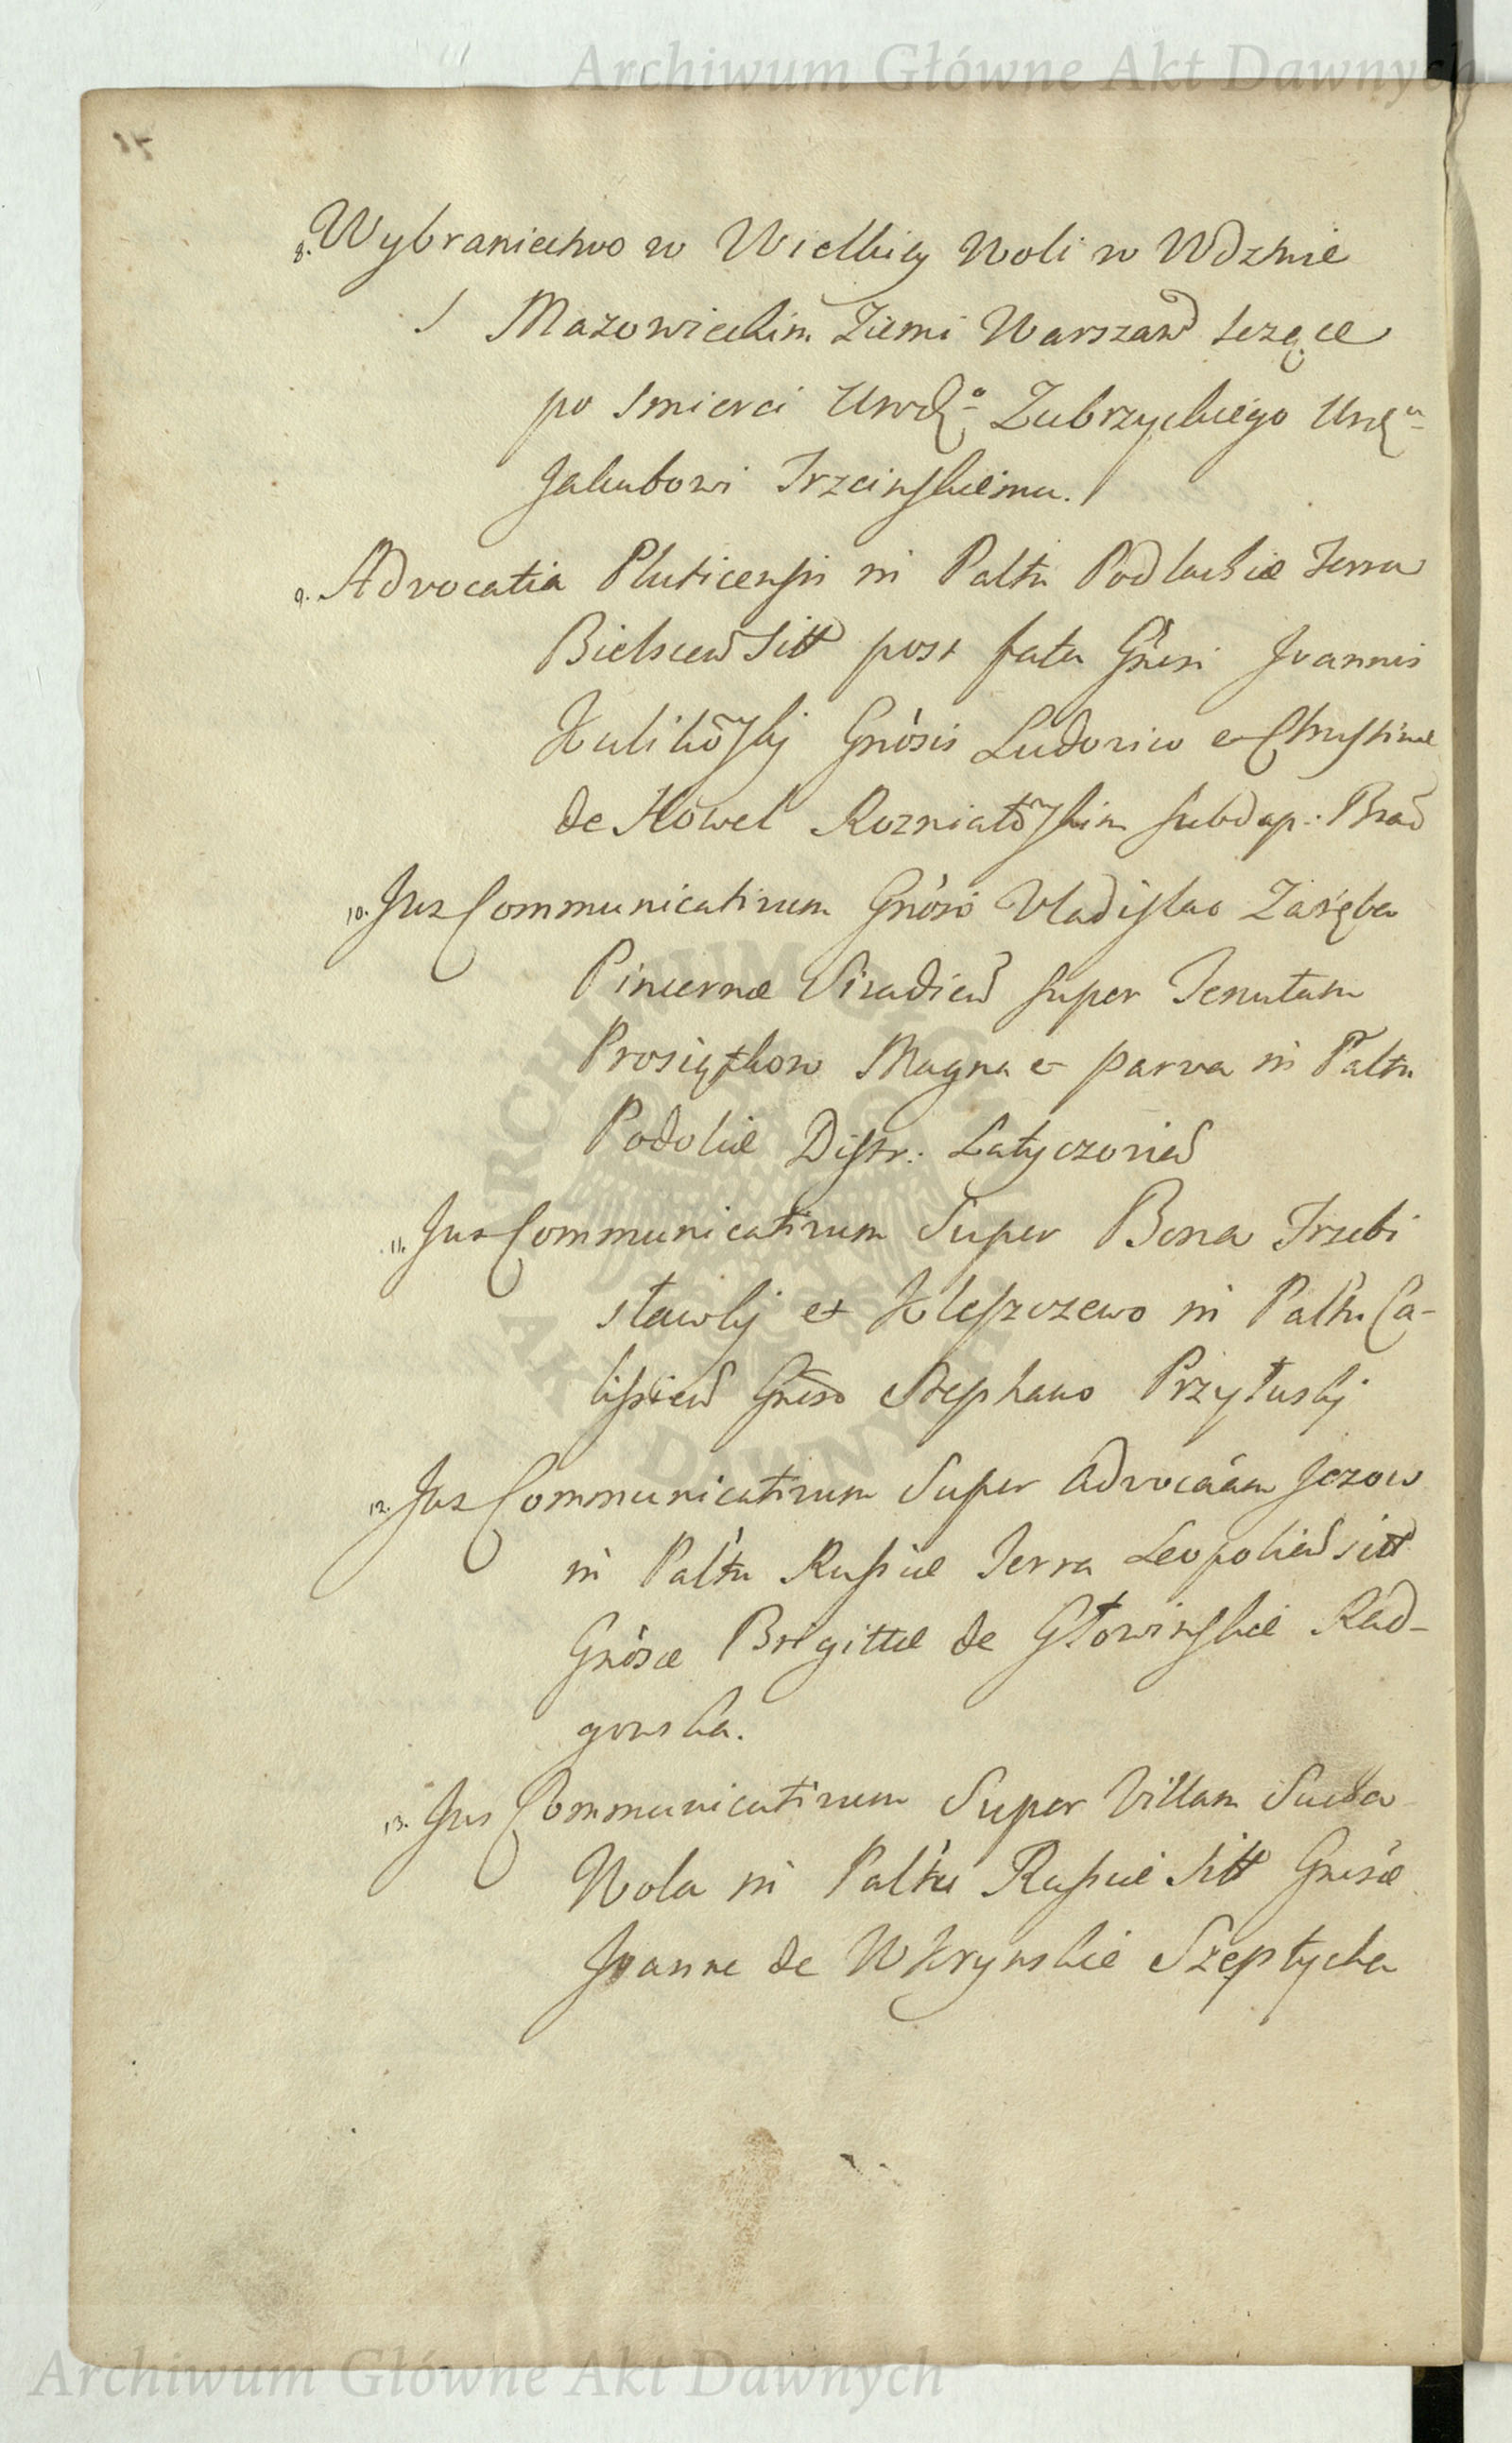 Archiwum Główne Akt Dawnych
8. Wybraniectwo w Wielkiey Woli w Wdztwie
Mazowieckim Ziemi Warszaw leżące
po Smierci Urodz° Zubrzyckiego Urodz
Jakubowi Trzcinskiemu.
9. Advocatia Pluticensis in Paltu Podlachiæ Terra
Bielscen Sitt post fata Gnesi Joannis
Kulikōskj Gnosis Ludovico et Christinæ
de Howel Rozniatōskim Subdap: Brac
10. Jus Communicativum Gnoso Vladislao Zaręba
Pincernæ Siradien super Tenutam
Prosiątkow Magna et parva in Paltu
Podoliæ Distr: Latyczovien
11. Jus Communicativum Super Bona Trzebi
sławkj et Kleszczewo in Paltu Ca-
lissien Gneso Stephano Przyłuskj
12. Jus Communicativum Super advocaam Jezow
in Paltu Russiæ Terra Leopolien sitt
Gnosæ Brigittæ de Głowinskie Rad-
gowska.
13. Jus Communicativum Super Villam Sucha
Wola in Paltu Russiæ Sitt Gnesæ
Joanne de Wkrynskie Szeptycka
Archiwum Główne Akt Dawnych